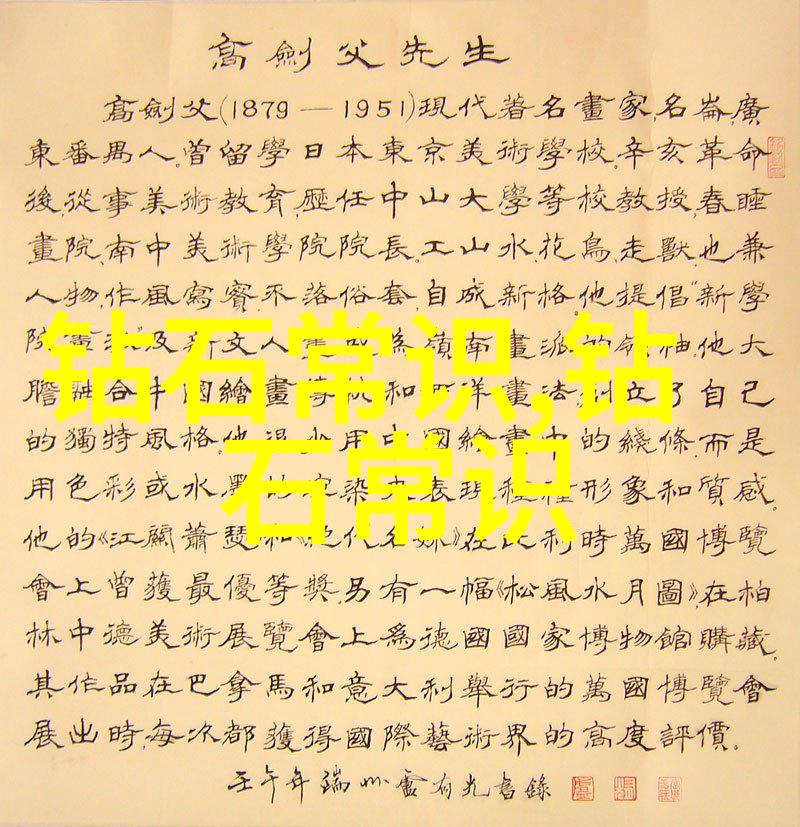 高劍父先生
高劍父(1879—1951)現代著名畫家,名崙,廣
東番禺人。曾留學日本東京美術學校。辛亥革命
後,從事美術教育,歷任中山大學等校教授,春睡
畫院,南中美術學院院長。工山水,花鳥,走獸,也兼
人物,作風寫實,不落俗套,自成新格。他提倡"新學
院及新文人成為嶺南畫派的領袖,他大
膽融合中國繪畫傳統和西洋畫法,創立了自己
的獨特風格。他用中國繪畫中的綫條,而是
用色彩或水墨的染表現形象和質感。
他的《江關蕭瑟》和《絕代名姝》在比利時萬國博覽
會上曾獲最優等獎,另有一幅《松風水月圖》,在柏
林中德美術展覽會上爲德國國家博物館購藏。
其作品在巴拿馬和意大利舉行的萬國博覽會
展出時,每次都獲得國際藝術界的高度評價。
壬午年端州盧有光書錄
钻石常识,钻
石常识